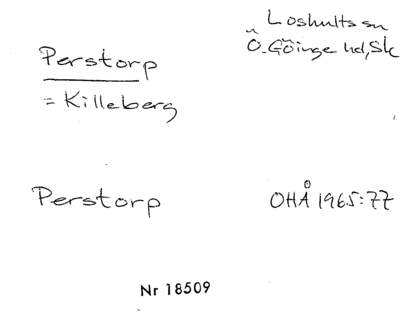 Loshults sn
Perstorp
Ö. Göinge hd, Sk
= Killeberg
Perstorp
OHÅ 1965:77
Nr 18509